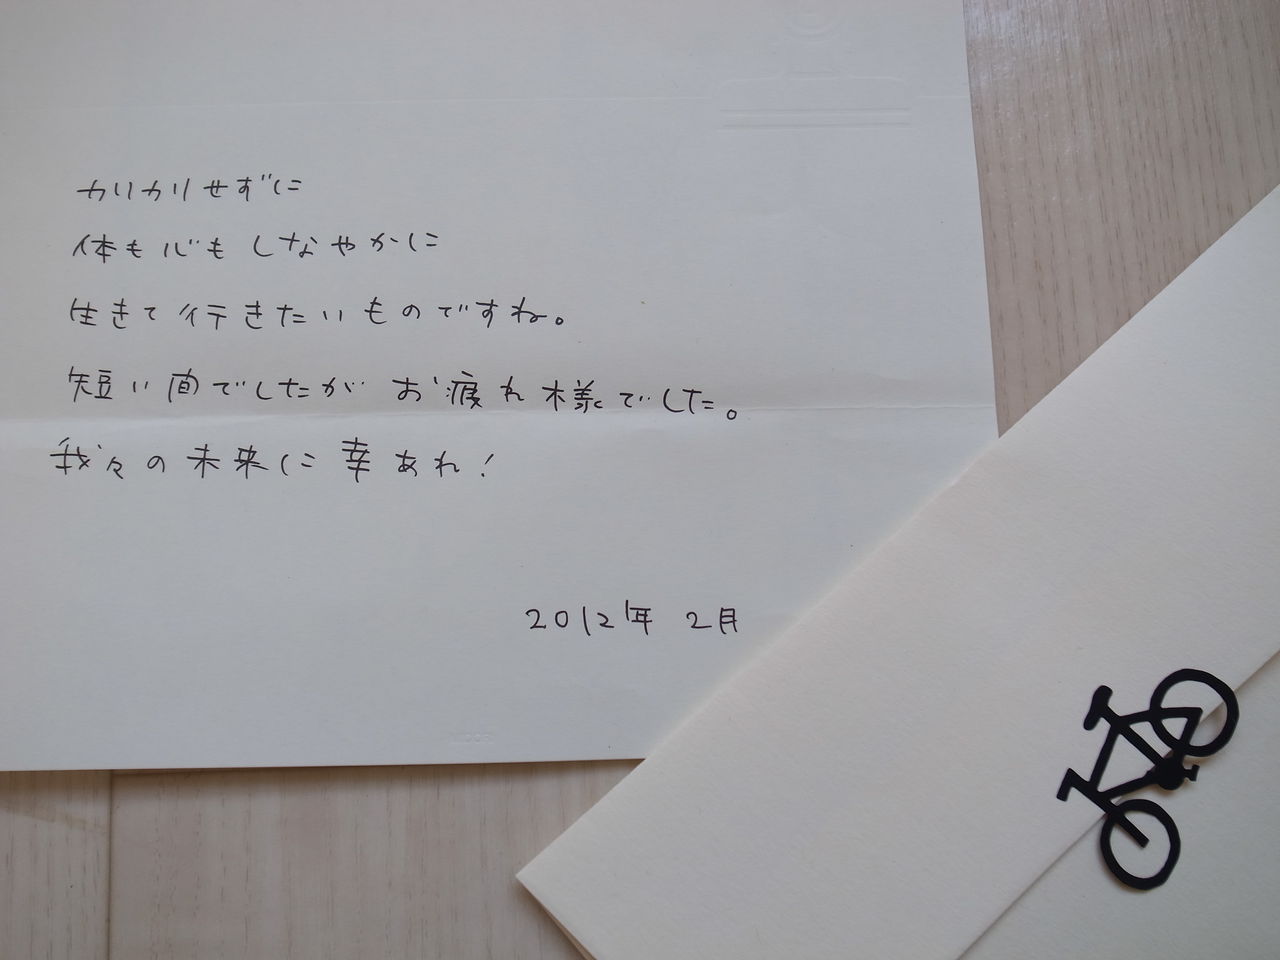 カリカリせずに
体も心もしなやかに
生きて行きたいものですね。
短い間でしたがお疲れ様でした。
我々の未来に幸あれ!
2012年 2月